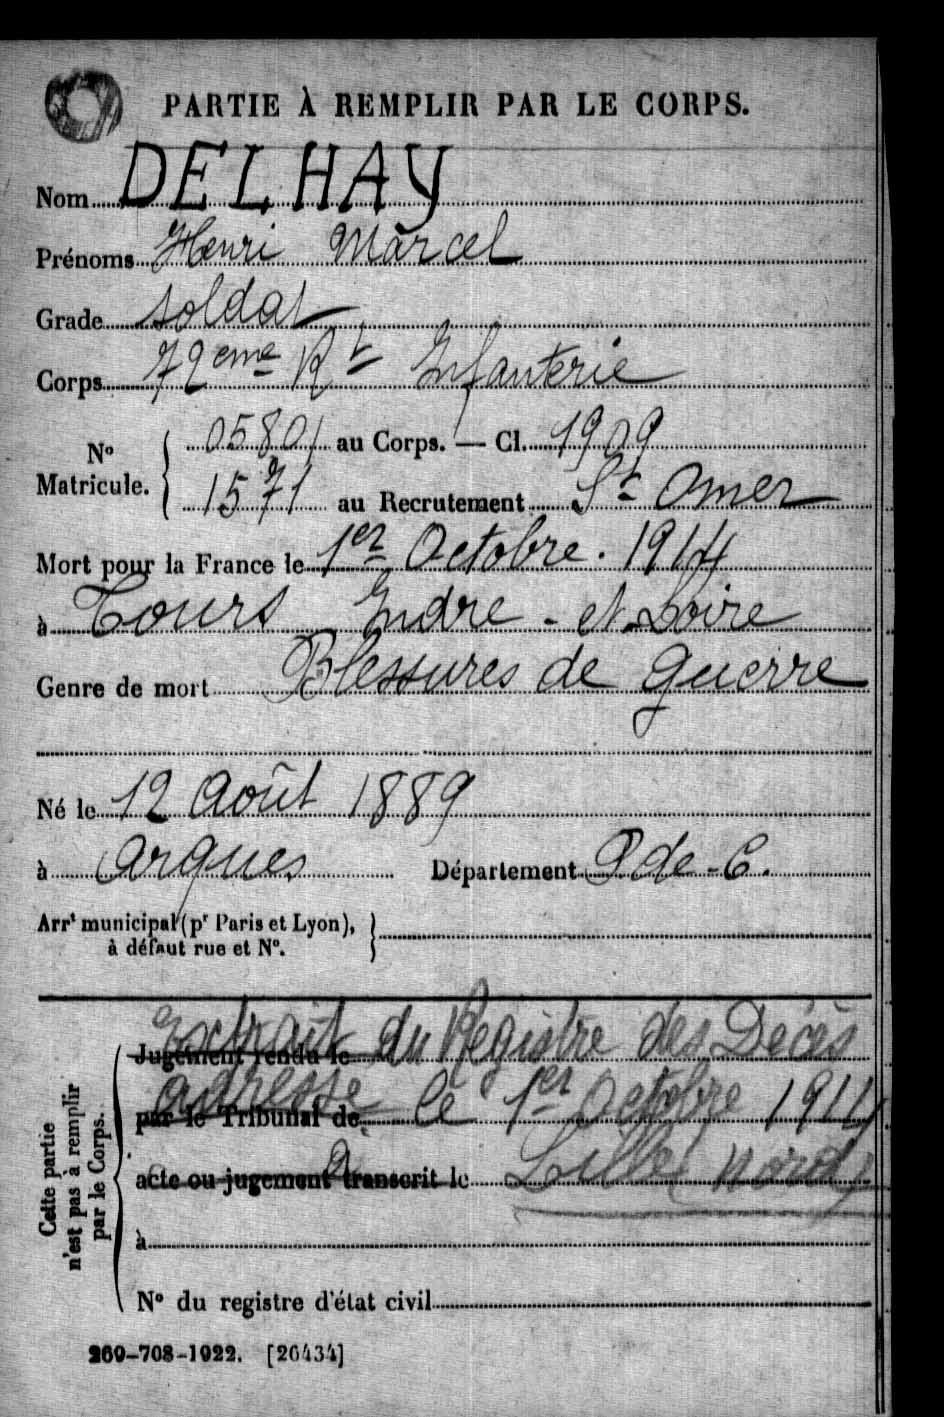 PARTIE À REMPLIR PAR LE CORPS.
Nom DELHAY
Prénoms Henri Marcel
Grade soldat
Corps 72eme Rt Infanterie
No Matricule. { 05801 au Corps. — Cl. 1909
1571 au Recrutement St Omer
Mort pour la France le 1er Octobre . 1914
à Tours Indre - et Loire
Genre de mort Blessures de guerre
Né le 12 Août 1889
à Arques Département P de -C.
Arrt municipal (pr Paris et Lyon), à défaut rue et No. }
Extrait du Registre des Décès
Jugement rendu le
adressé le 1er Octobre 1914
par le Tribunal de
à Lille Nord
acte ou jugement transcrit le
à
No du registre d'état civil
Cette partie n'est pas à remplir par le Corps.
269-708-1922. [26434]